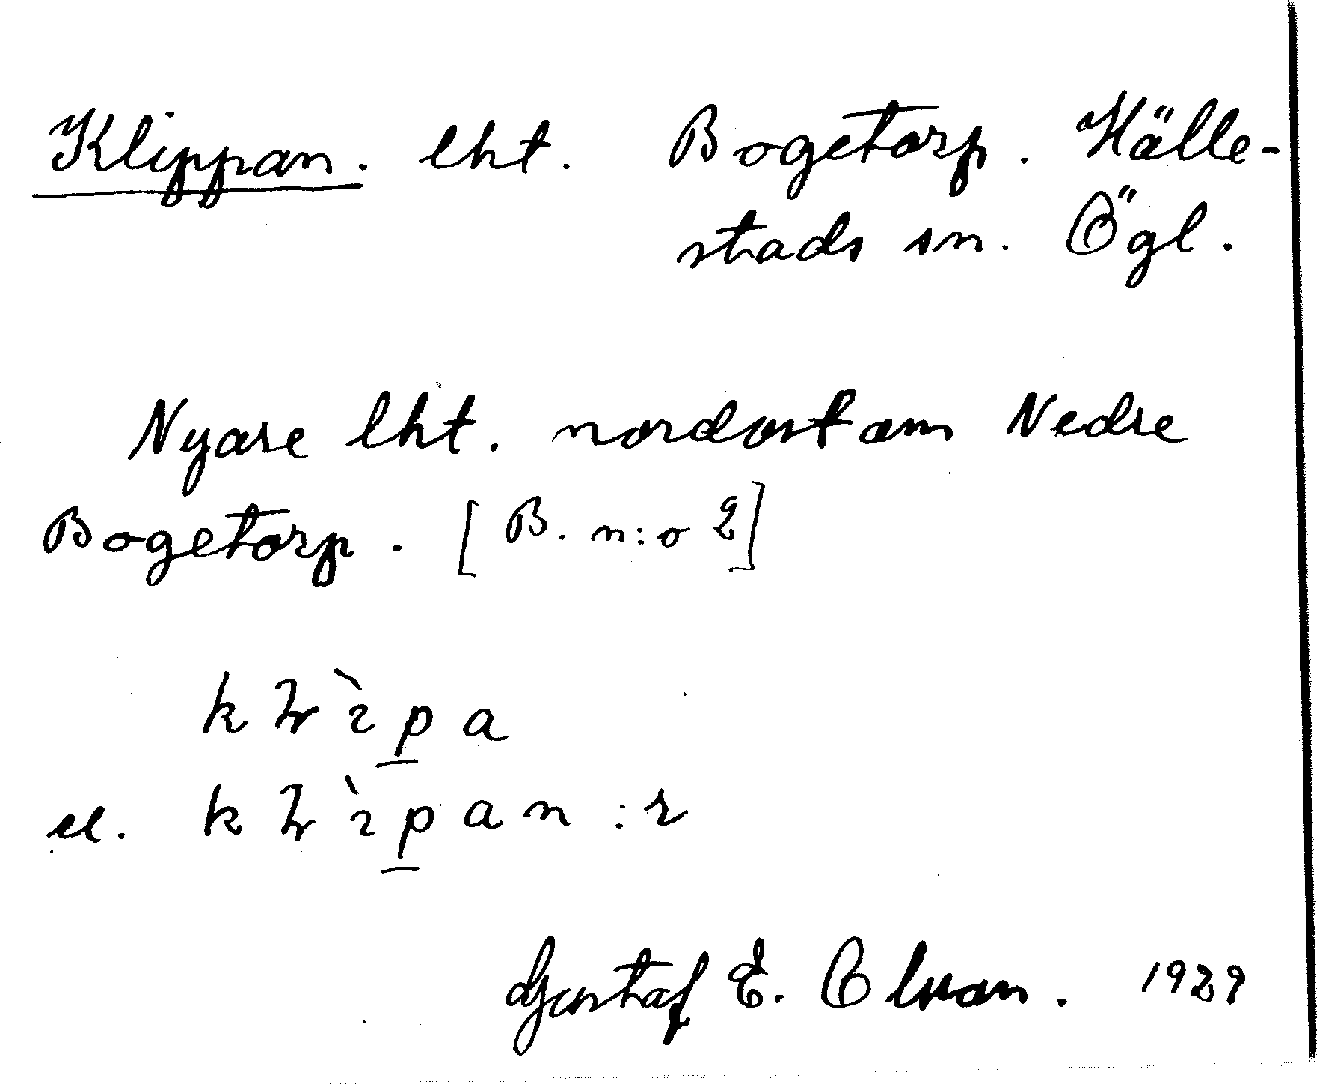 Klippan. lht. Bogetorp. Hälle-
stads sn. Ögl.
Nyare lht. nordost om Nedre
Bogetorp. [B. n:o 2]
el.
Gustaf E. Olson. 1929